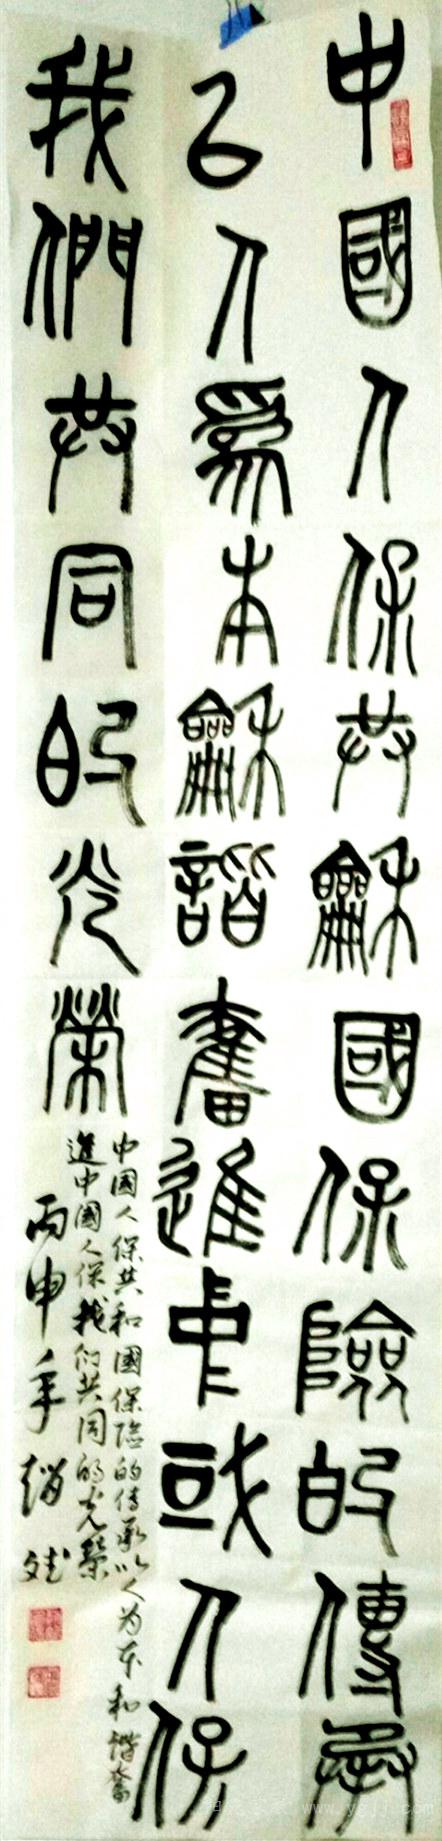 中國人保共龢國保險的傳承
㠯人爲本龢諧奮進中或人保
我們共同的光榮
中国人保共和國保险的传承以人为本和谐奮
進中國人保我们共同的光榮
丙申年